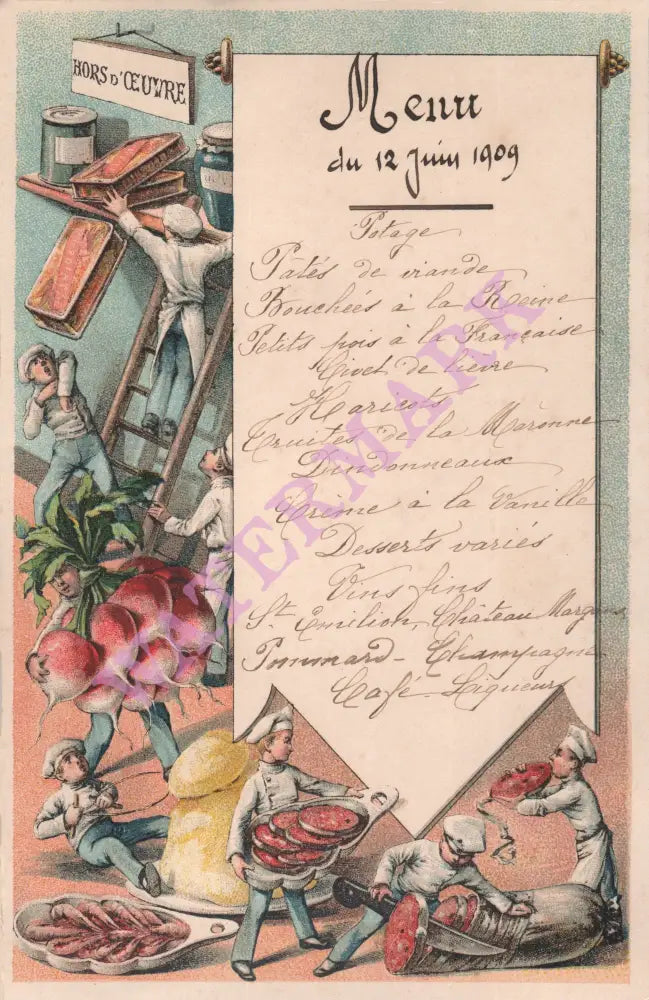 HORS D'ŒUVRE
Menu
du 12 Juin 1909
Potage
Pâtés de viande
Bouchées à la Reine
Petits pois à la Française
Civet de lièvre
Haricots
Truites de la Maronne
Dindonneaux
Crème à la Vanille
Desserts variés
Vins fins
St Emilion, Château Margaux
Pommard - Champagne
Café - Liqueurs
WATERMARK